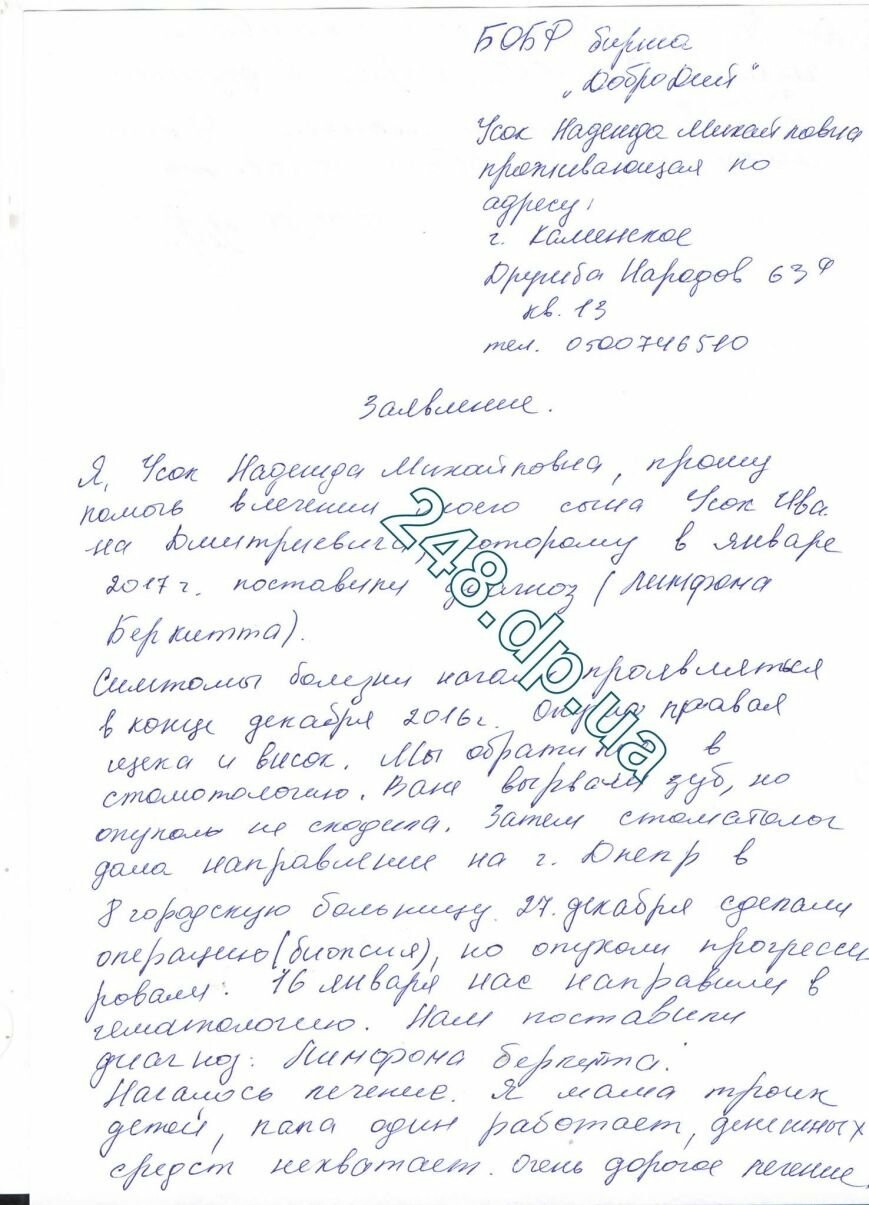 БОБФ биржа
„ДоброДий"
Усок Надежда Михайловна
проживающая по
адресу:
г. Каменское
Дружба Народов 63ф
кв. 13
тел. 0500746510
Заявление.
Я, Усок Надежда Михайловна, прошу
помочь в лечении моего сына Усок Ива
на Дмитриевича, которому в январе
2017 г. поставили диагноз (Лимфома
Беркитта).
Симптомы болезни начали проявляться
в конце декабря 2016 г. правая
щека и висок. Мы обратились в
стомотологию. Ване вырвали зуб, но
опухоль не сходила. Затем стоматолог
дала направление на г. Днепр в
8 городскую больницу. 27. декабря сделали
операцию (биопсия), но опухоли прогресси
ровали. 16 января нас направили в
гематологию. Нам поставили
диагноз: Лимфома беркитта.
Началось лечение. Я мама троих
детей, папа один работает, денежных
средст нехватает. Очень дорогое лечение.
248.dp.ua